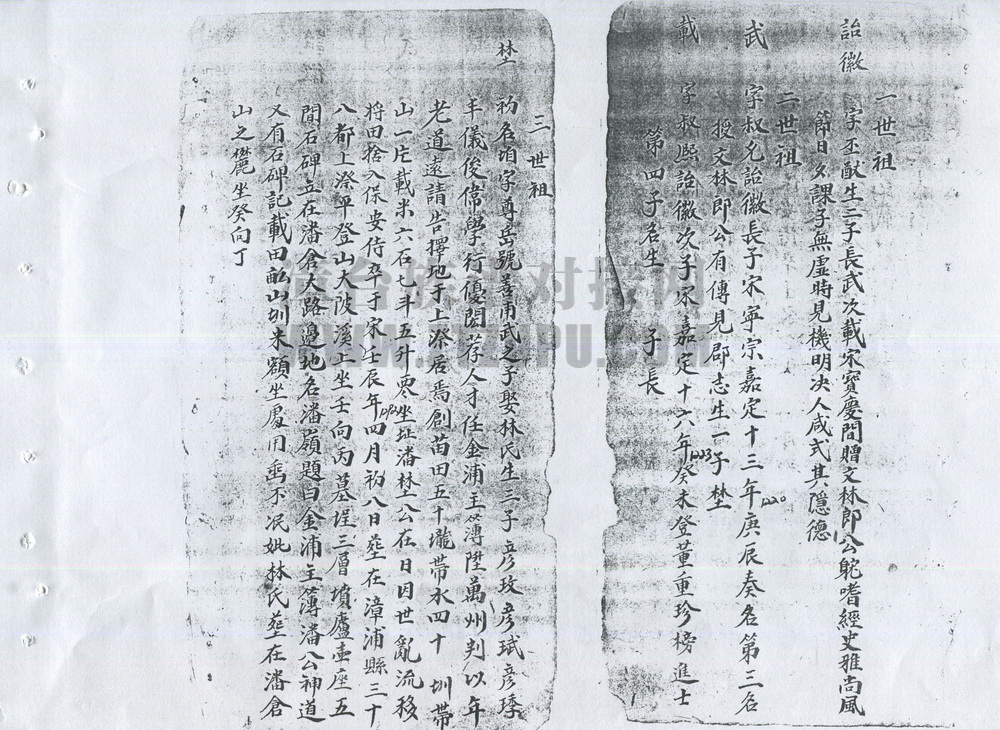 一世祖
詒徽 字丕猷生二子長武次載宋寶慶間贈文林郎公躭嗜經史雅尚風
節日夕課子無虛時見機明决人咸式其隱德
二世祖
武 字叔允詒徽長子宋寧宗嘉定十三年庚辰奏名第三名
1220
授文林郎公有傳見郡志生一子埜
載 字叔熙詒徽次子宋嘉定十六年癸未登董重珍榜進士
1223
第四子名生 子長
三世祖
埜 初名珀字尊岳號善甫武之子娶林氏生三子彦玫彦珷彦瑧
丰儀俊偉學行優閎荐人才任金浦主簿陞萬州判以年
老道遠請告擇地于上漈居焉創苗田五十壠帶水四十圳帶
山一片載米六石七斗五升零坐址潘埜公在日因世亂流移
將田捨入保安侍卒于宋壬辰年四月初八日塟在漳浦縣三十
八都上漈平登山大陂溪上坐壬向丙墓埕三層墳廬壹座五
間石碑立在潘倉大路邉地名潘嶺題曰金浦主簿潘公神道
又有石碑記載田畆山圳米額坐處用垂不泯妣林氏塟在潘倉
山之麓坐癸向丁